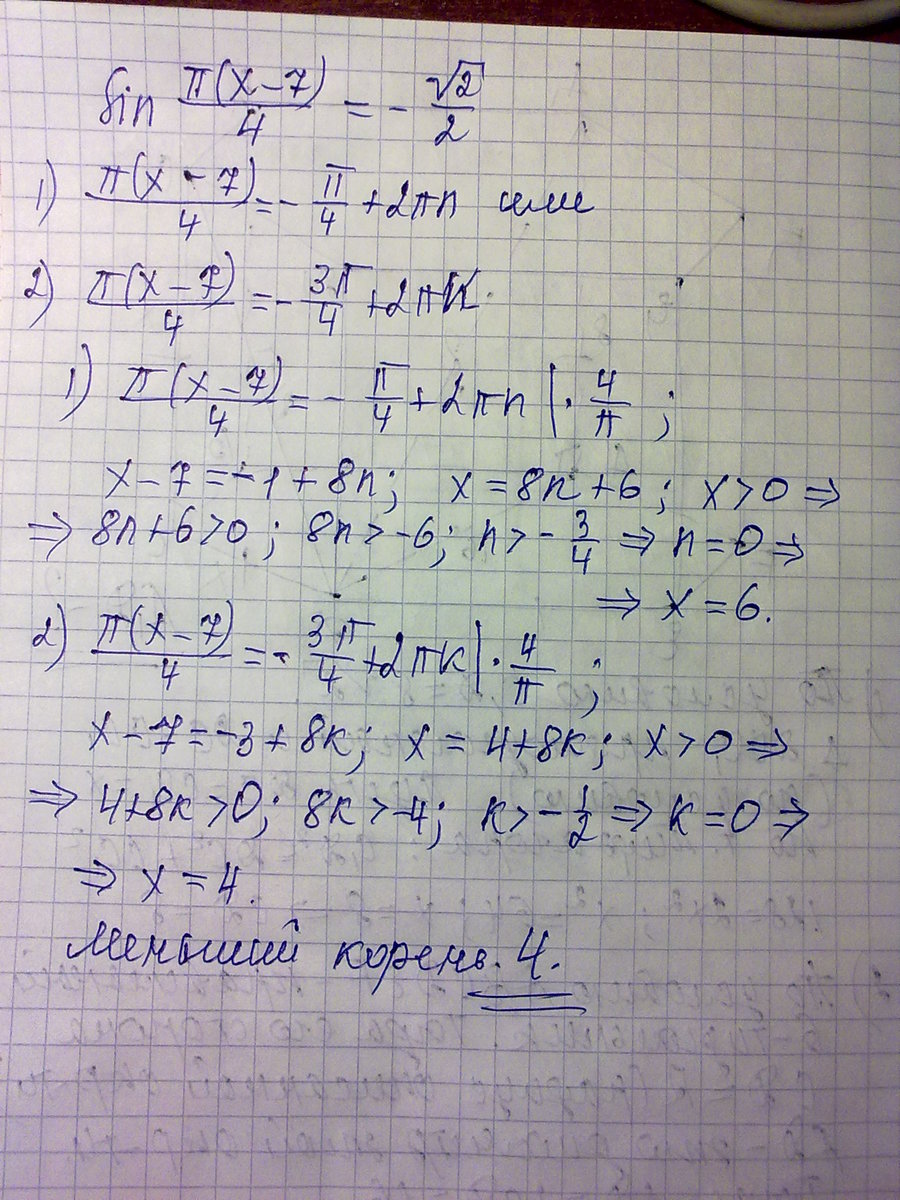 sin π(x-7)/4 = - √2/2
1) π(x-7)/4 = - π/4 + 2πn или
2) π(x-7)/4 = - 3π/4 + 2πk.
1) π(x-7)/4 = - π/4 + 2πn | · 4/π ;
x-7 = -1 + 8n; x = 8n + 6; x > 0 ⇒
⇒ 8n+6 > 0; 8n > -6; n > - 3/4 ⇒ n = 0 ⇒
⇒ x = 6.
2) π(x-7)/4 = - 3π/4 + 2πk | · 4/π ;
x-7 = -3 + 8k; x = 4+8k; x > 0 ⇒
⇒ 4+8k > 0; 8k > -4; k > - 1/2 ⇒ k = 0 ⇒
⇒ x = 4.
Меньший корень. 4.